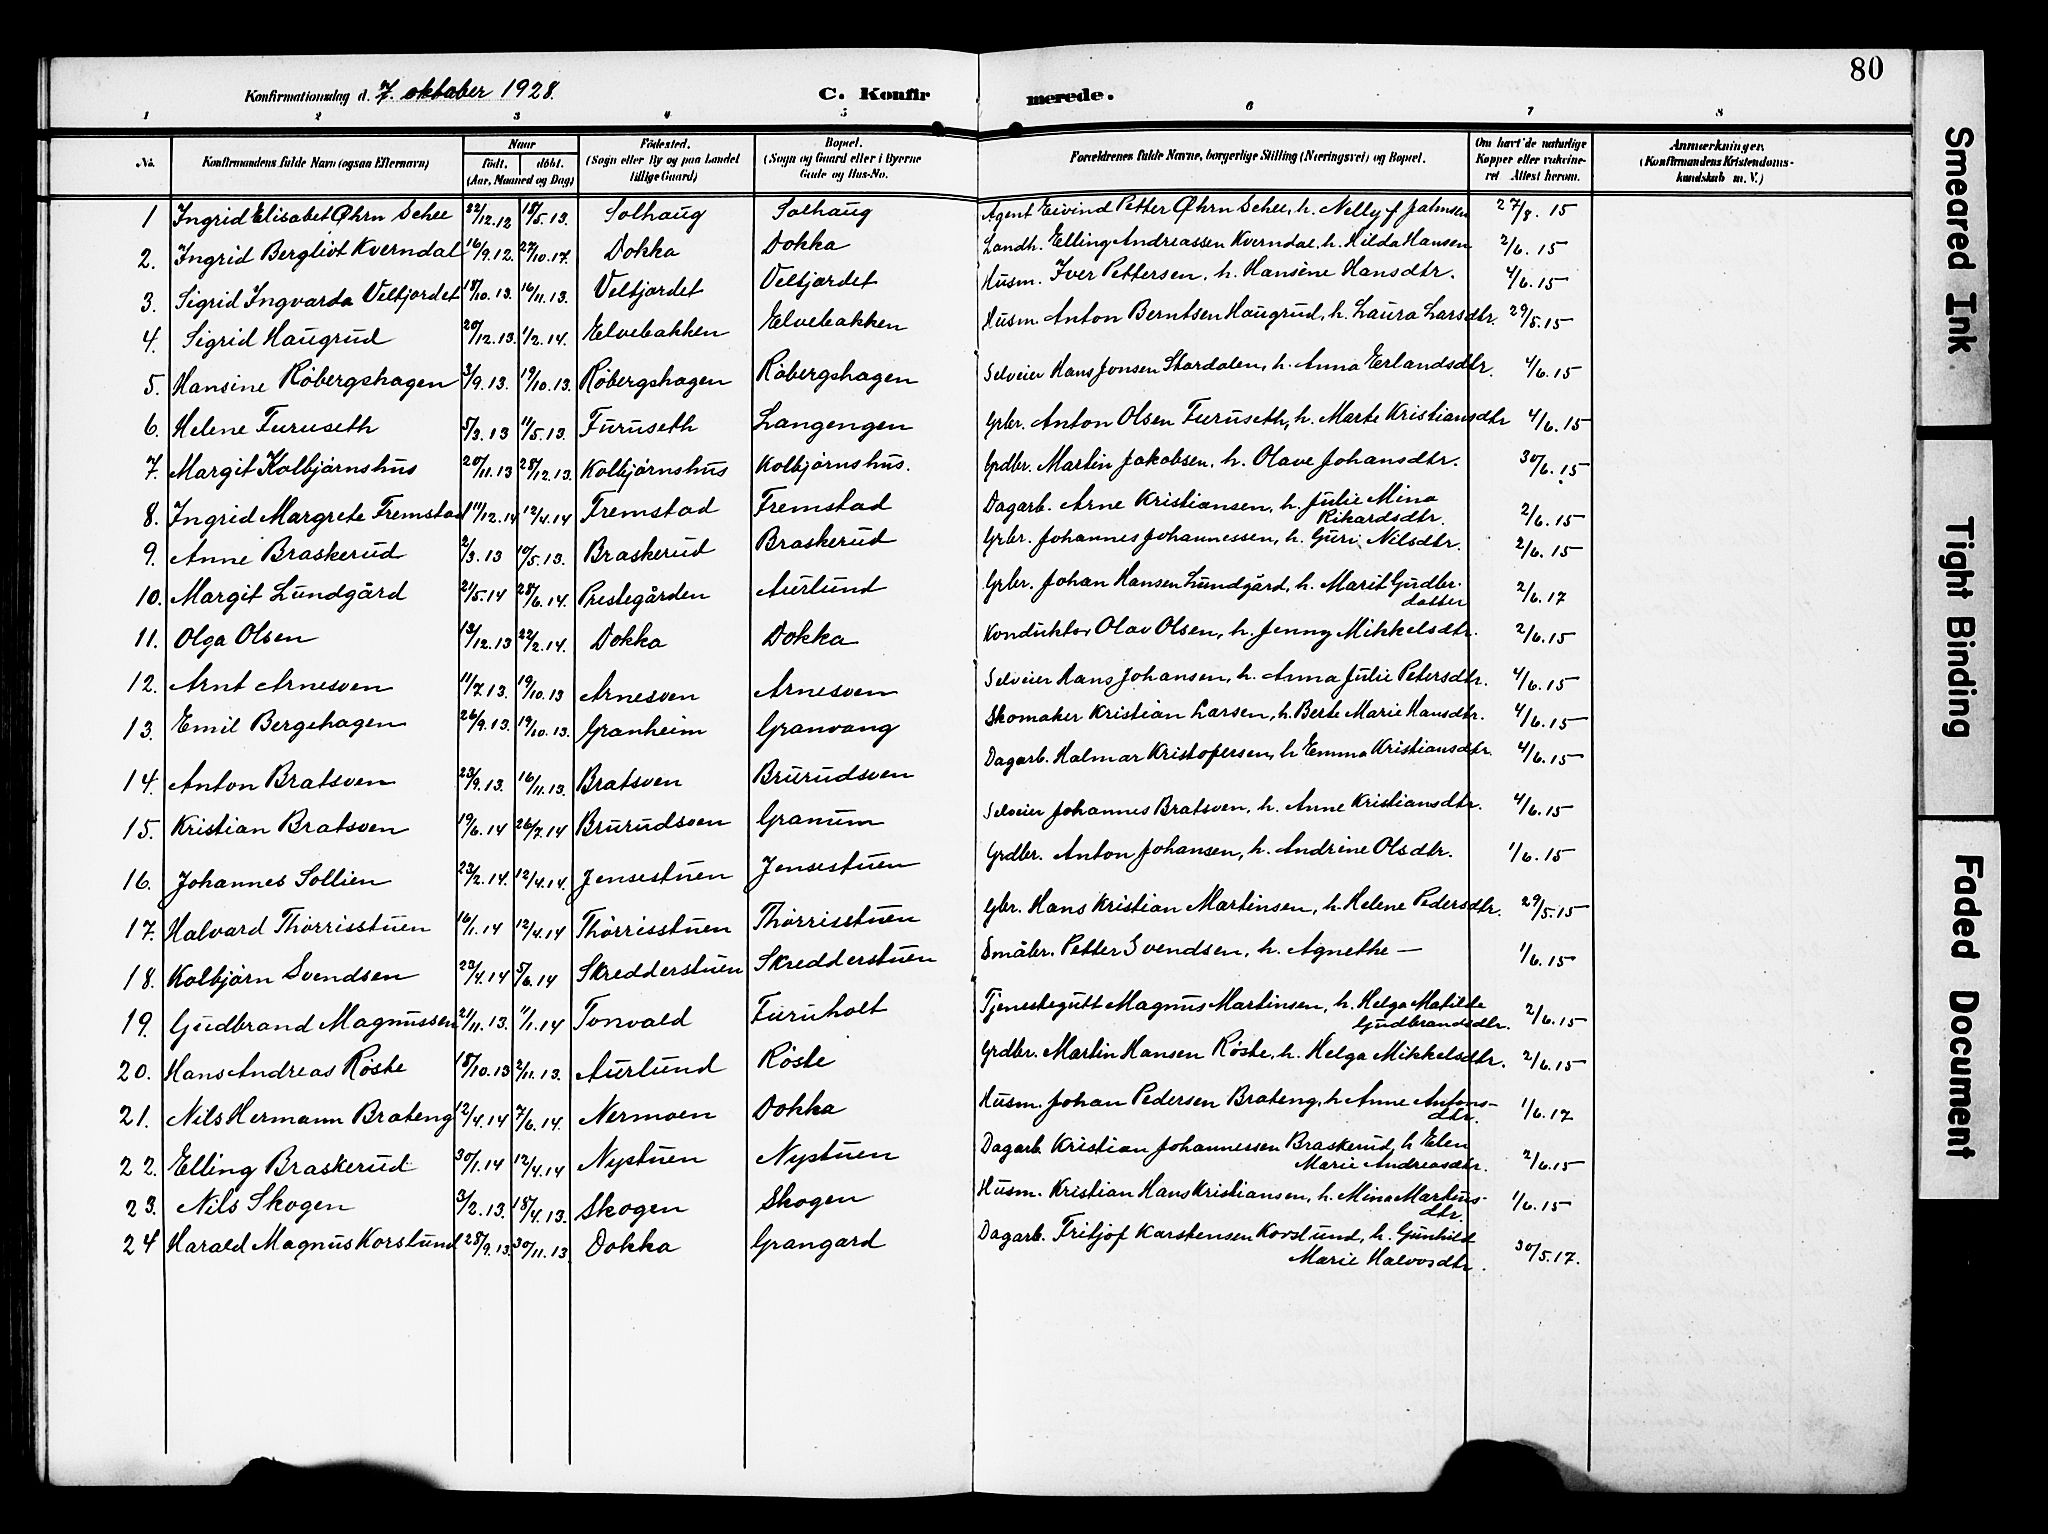 80
Konfirmationsdag d. 7. oktober 1928. C. Konfirmerede.
1 2 3 4 5 6 7 8
No. Konfirmandens fulde Navn (ogsaa Efternavn) Naar født. døbt. (Aar, Maaned og Dag) Fødested. (Sogn eller By og paa Landet tillige Gaard) Bopæl. (Sogn og Gaard eller i Byerne Gade og Hus-No. Forældrenes fulde Navne, borgerlige Stilling (Næringsvei) og Bopæl. Om havt de naturlige Kopper eller vakcineret Attest herom. Anmærkninger. (Konfirmandens Kristendomskundskab m. V.)
1 Ingrid Elisabet Øhrn Schee 22/12.12 18/5.13. Solhaug Solhaug Agent Eivind Petter Øhrn Schee, h. Nelly f Jahnsen 27/8.15
2. Ingrid Bergliot Kverndal 16/9.12. 27/10.17. Dokka Dokka Landh. Elling Andreassen Kverndal, h. Hilda Hansen 2/6.15
3. Sigrid Ingvarda Veltjordet 18/10.13. 16/11.13. Veltjordet Veltjordet Husm. Iver Pettersen, h. Hansine Hansdtr. 4/6.15
4. Sigrid Haugrud 20/12.13. 1/2.14. Elvebakken Elvebakken Husm. Anton Berntsen Haugrud, h. Laura Larsdtr. 29/5.15
5. Hansine Røbergshagen 3/9.13. 19/10.13. Røbergshagen Røbergshagen Selveier Hans Jonsen Skardalen, h. Anna Erlandsdtr. 4/6.15
6. Helene Furuseth 5/3.13 11/5.13. Furuseth Langengen Grbr. Anton Olsen Furuseth, h. Marte Kristiansdtr 4/6.15
7. Margit Kolbjørnshus 20/11.13 28/12.13. Kolbjørnshus Kolbjørnshus. Grdbr. Martin Jakobsen, h. Olave Johansdtr. 30/6.15
8. Ingrid Margrete Fremstad 11/12.14 12/4.14 Fremstad Fremstad Dagarb. Arne Kristiansen, h. Julie Mina Rikardsdtr. 2/6.15
9. Anne Braskerud 2/3.13 10/5.13. Braskerud Braskerud Grbr. Johannes Johannessen, h. Guri Nilsdtr. 2/6.15
10. Margit Lundgård 2/5.14 28/6.14. Prestegården Aurlund Grbr. Johan Hansen Lundgård, h. Marit Gudbr. datter 2/6.17
11. Olga Olsen 13/12.13 22/2.14. Dokka Dokka Konduktør Olav Olsen, h. Jenny Mikkelsdtr. 2/6.15
12. Arnt Arnesven 11/7.13. 19/10.13 Arnesven Arnesven Selveier Hans Johansen, h. Anna Julie Petersdtr. 4/6.15
13. Emil Bergehagen 26/9.13. 19/10.13. Granheim Granvang Skomaker Kristian Larsen, h. Berte Marie Hansdtr. 4/6.15
14. Anton Bratsven 23/9.13. 16/11.13. Bratsven Brurudsven Dagarb. Halmar Kristofersen, h Emma Kristiansdtr. 4/6.15
15. Kristian Bratsven 19/6.14 26/7.14 Brurudsven Granum Selveier Johannes Bratsven, h. Anne Kristiansdtr. 4/6.15
16. Johannes Sollien 23/2.14. 12/4.14. Jensestuen Jensestuen Grdbr. Anton Johansen, h. Andrine Olsdtr. 1/6.15
17. Halvard Thorrisstuen 16/1.14 12/4.14 Thorrisstuen Thorrisstuen Gbr. Hans Kristian Martinsen, h. Helene Pedersdtr. 29/5.15
18. Kolbjørn Svendsen 23/4.14 5/6.14 Skredderstuen Skredderstuen Småbr. Petter Svendsen, h. Agnethe — 1/6.15
19. Gudbrand Magnussen 21/11.13. 1/1.14 Tonvald Furuholt Tjenestegutt Magnus Martinsen, h. Helga Matilde Gudbrandsdtr. 2/6.15
20. Hans Andreas Røste 18/10.13 2/11.13. Aurlund Røste Grdbr. Martin Hansen Røste, h. Helga Mikkelsdtr. 2/6.15
21. Nils Hermann Brateng 12/4.14 7/6.14. Nermoen Dokka Husm. Johan Pedersen Brateng, h Anne Antons-dtr. 1/6.17
22. Elling Braskerud 30/1.14 12/4.14 Nystuen Nystuen Dagarb. Kristian Johannessen Braskerud, h Elen Marie Andreasdtr. 2/6.15
23. Nils Skogen 3/2.13. 18/4.13. Skogen Skogen Husm. Kristian Hans Kristiansen, h. Mina Martins-dtr. 1/6.15
24 Harald Magnus Korslund 28/9.13. 30/11.13. Dokka Grangard Dagarb. Fritjof Karstensen Korslund, h. Gunhild Marie Halvosdtr. 30/5.17.
Smeared Ink
Tight Binding
Faded Document